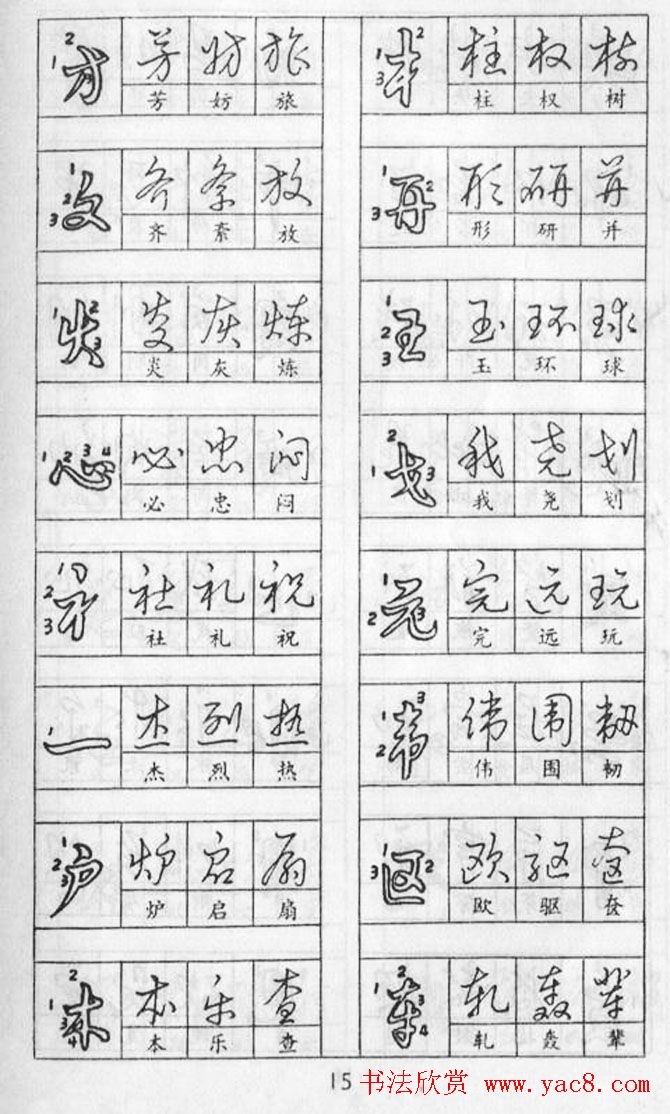 方 芳 妨 旅
芳 妨 旅
文 齐 紊 放
齐 紊 放
火 炎 灰 炼
炎 灰 炼
心 必 忠 闷
必 忠 闷
礻 社 礼 祝
社 礼 祝
一 杰 烈 热
杰 烈 热
户 炉 启 扇
炉 启 扇
木 本 乐 查
本 乐 查
木 柱 权 树
柱 权 树
开 形 研 并
形 研 并
王 玉 环 球
玉 环 球
戈 我 尧 划
我 尧 划
元 完 远 玩
完 远 玩
韦 伟 围 韧
伟 围 韧
区 欧 驱 奁
欧 驱 奁
车 轧 轰 辈
轧 轰 辈
15
书法欣赏 www.yac8.com